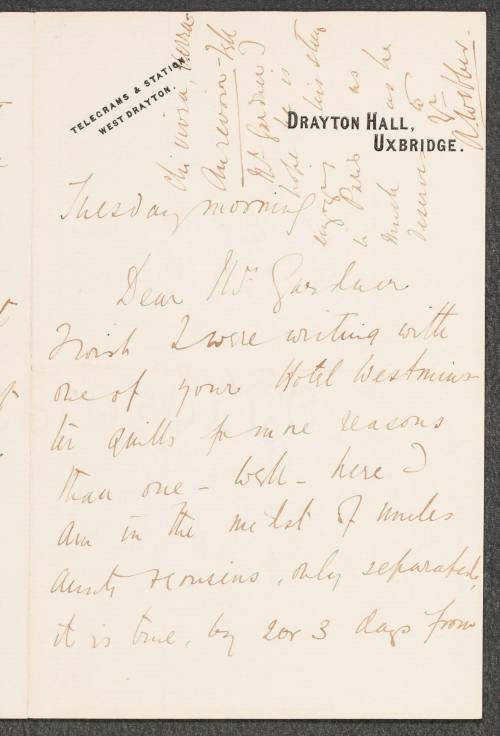 TELEGRAMS & STATION,
WEST DRAYTON.
DRAYTON HALL,
UXBRIDGE.
Tuesday morning
Dear Mrs Gardner
I wish I were writing with
one of your Hotel Westmins-
ter quills for more reasons
than one – Well – here I
am in the midst of uncles
aunts & cousins, only separated,
it is true, by 2 or 3 days from
Chi vivra, verra
Au revoir –
Mr Gardner I
hope is
enjoying this stay
in Paris as
much as he
deserves to